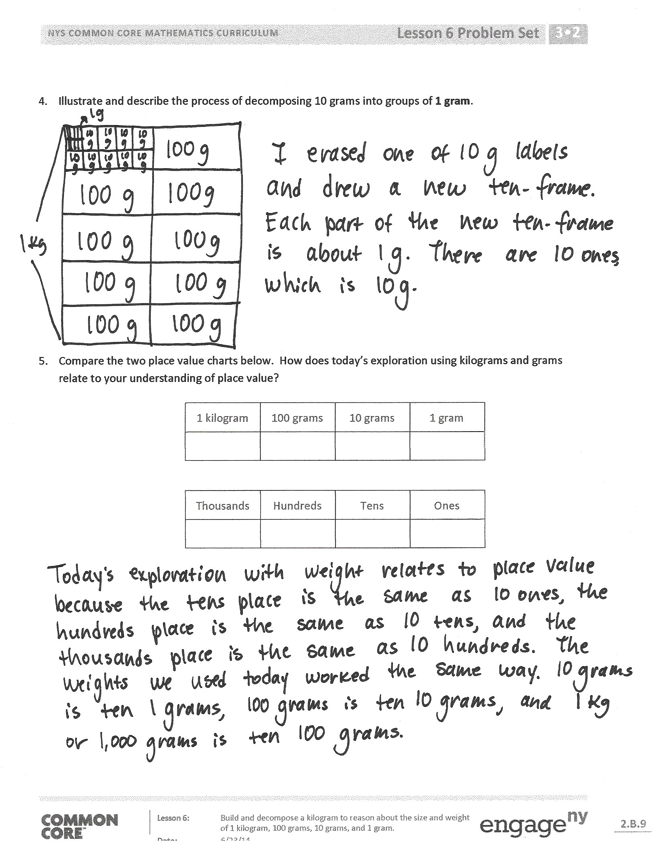 NYS COMMON CORE MATHEMATICS CURRICULUM
Lesson 6 Problem Set 3•2
4. Illustrate and describe the process of decomposing 10 grams into groups of 1 gram.
1g
10g 10g 10g 10g
10g 10g 10g 10g 10g
100g
100 g 100g
100 g 100g
100 g 100 g
100 g 100 g
1kg
I erased one of 10 g labels
and drew a new ten-frame.
Each part of the new ten-frame
is about 1g. There are 10 ones,
which is 10g.
5. Compare the two place value charts below. How does today's exploration using kilograms and grams
relate to your understanding of place value?
1 kilogram 100 grams 10 grams 1 gram
Thousands Hundreds Tens Ones
Today's exploration with weight relates to place value
because the tens place is the same as 10 ones, the
hundreds place is the same as 10 tens, and the
thousands place is the same as 10 hundreds. The
weights we used today worked the same way. 10 grams
is ten 1 grams, 100 grams is ten 10 grams, and 1 kg
or 1,000 grams is ten 100 grams.
COMMON
CORE™
Lesson 6:
Build and decompose a kilogram to reason about the size and weight
of 1 kilogram, 100 grams, 10 grams, and 1 gram.
engage ny
2.B.9